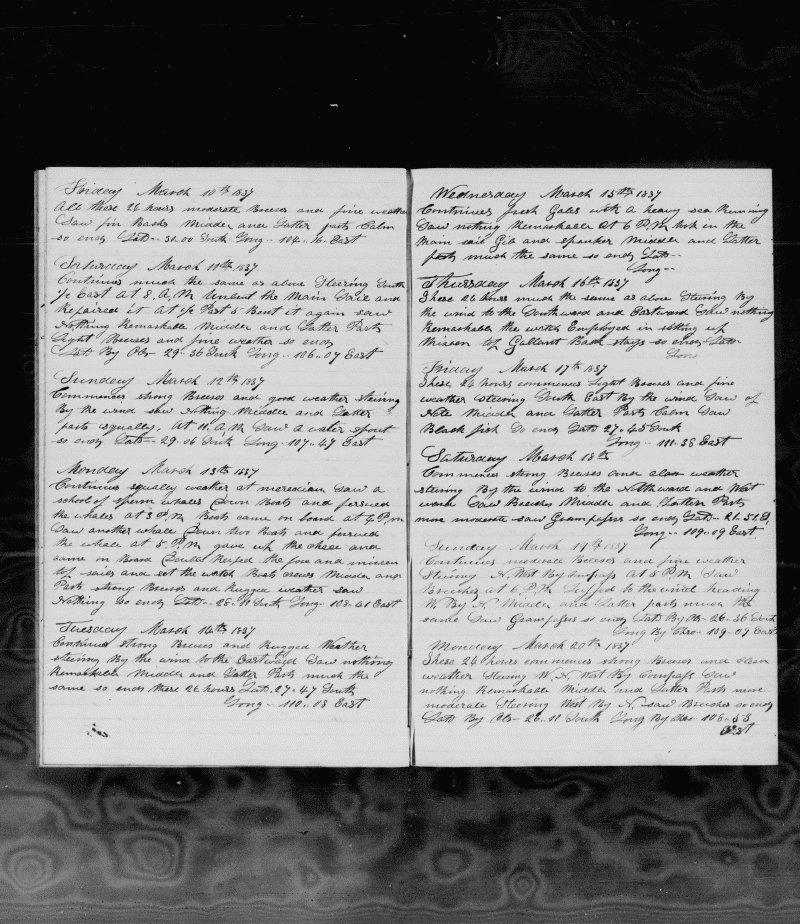 Friday March 10th 1837
All these 24 hours moderate Breeses and fine weather
Saw fin Backs Midder and Latter parts Calm
so ends Latd- 31.00 South Long- 104.. 16. East
Saturday March 11th 1837
Continues much the same as above Steering South
1/2 East At 8, A, M Unbent the Main Sail and
Repaired it At 1/2 Past 5 Bent it again saw
Nothing Remarkable Midder and Latter Parts
Light Breeses and fine weather so ends
Latd By Obs- 29-36 South Long-- 106-07 East
Sunday March 12th 1837
Commences strong Breeses and good weather steiring
By the wind saw Nothing Middle and Latter
parts squally, At 11, A, M Saw a water spout
so ends Latd-- 29-06 South Long-107-47 East
Monday March 13th 1837
Continues squally weather at meredian Saw a
school of sperm whales Down Boats and persued
the whales at 3 P, M Boats came on board at 4 P, M
Saw another whale Down two Boats and persued
the whale at 5, P, M gave up the chace and
came on Board Double Reefed the fore and missen
top-sails and set the watch Boats crews Midder and
Parts strong Breeses and Rugged weather saw
Nothing so ends Latd-- 28-11 South Long- 108-41 East
Tuesday March 14th 1837
Continues strong Breeses and Rugged Weather
steering By the wind to the Eastward Saw nothing
Remarkable Midder and Latter Parts much the
same so ends these 24 hours Latd. 27-47 South
Long-- 110-08 East
Wednesday March 15th 1837
Continues fresh Gales with a heavy sea Running
Saw nothing Remarkable At 6 P, M took in the
Main sail Gib and spanker Midder and Latter
parts much the same so ends Latd--
Long--
Thursday March 16th 1837
These 24 hours much the same as above Steering By
the wind to the Southward and Eastward Saw nothing
Remarkable the watch Employed in setting up
Missen top Gallant Back stays so ends Latd-
Lon
Friday March 17th 1837
These 24 hours commences Light Breeses and fine
weather steering South East By the wind Saw of
Note Midder and Latter Parts Calm Saw
Black fish So ends Latd 27-45 South
Long-- 111-38 East
Saturday March 18th
Commences strong Breeses and clear weather
steering By the wind to the Northward and West
ward Saw Breeches Midder and Latter Parts
more moderate saw Grampuses so ends Latd-- 27-51 S,
Long-- 109-09 East
Sunday March 19th 1837
Continues moderate Breeses and fine weather
Steering N, West By Compass at 5 P, M Saw
Breeches at 6, P, M Luffed to the wind heading
W By N Midder and Latter parts much the
same Saw Grampuses so ends Latd By Obs- 26-36 South
Long By Chro- 109-07 East
Monday March 20th 1837
These 24 hours commences strong Breeses and clear
weather steering W, N, West By Compass Saw
nothing Remarkable Midder and Latter Parts more
moderate Steering West By N, saw Breeches so ends
Latd By Obs- 26-11 South Long By Chro- 108-53
East